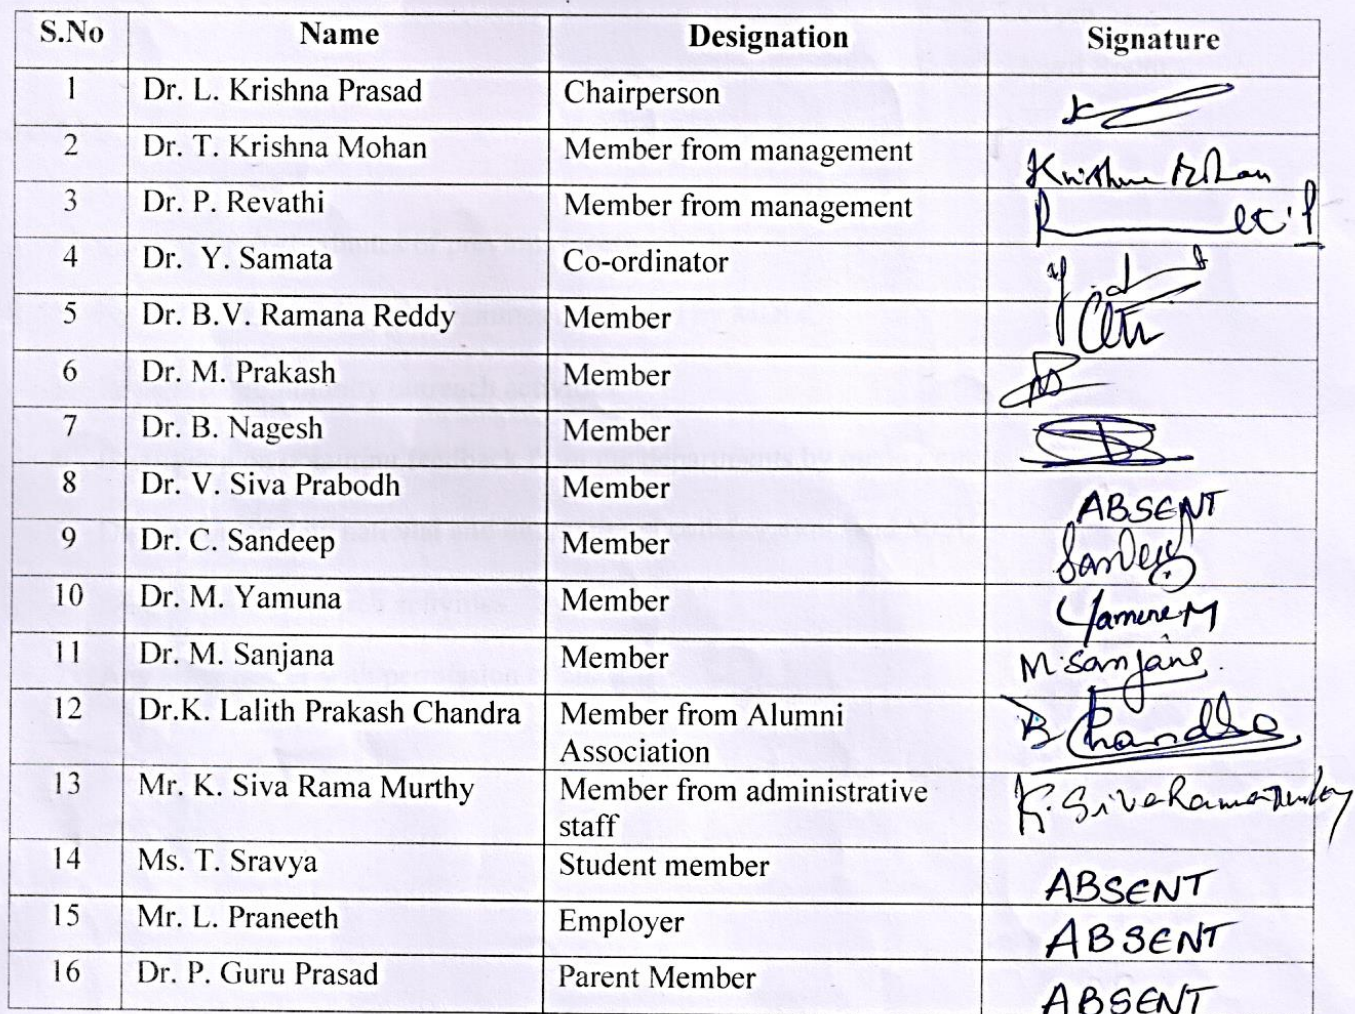 S.No Name Designation Signature
1 Dr. L. Krishna Prasad Chairperson
2 Dr. T. Krishna Mohan Member from management Krishna Mohan
3 Dr. P. Revathi Member from management
4 Dr. Y. Samata Co-ordinator
5 Dr. B.V. Ramana Reddy Member
6 Dr. M. Prakash Member
7 Dr. B. Nagesh Member
8 Dr. V. Siva Prabodh Member ABSENT
9 Dr. C. Sandeep Member Sandeep
10 Dr. M. Yamuna Member Yamuna M
11 Dr. M. Sanjana Member M. Sanjana.
12 Dr.K. Lalith Prakash Chandra Member from Alumni
Association
13 Mr. K. Siva Rama Murthy Member from administrative K. Siva Rama Murthy
staff
14 Ms. T. Sravya Student member ABSENT
15 Mr. L. Praneeth Employer ABSENT
16 Dr. P. Guru Prasad Parent Member ABSENT